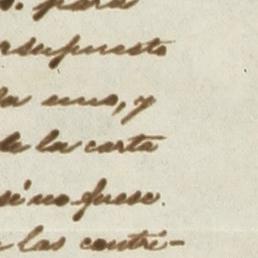 para
rsupuesto
la uno, y
de la carta
sé no fuese.
las contri-